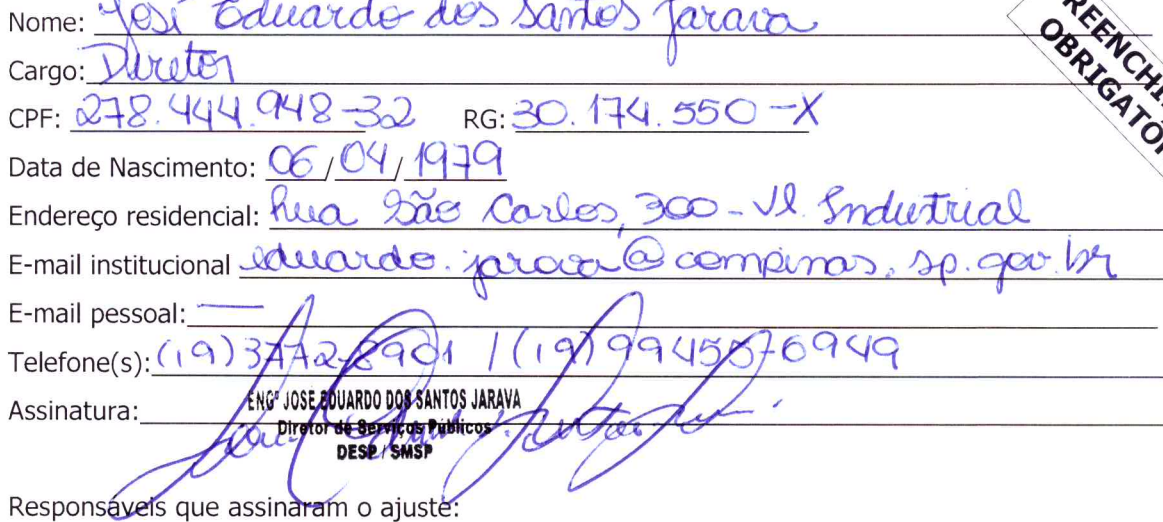 Nome: José Eduardo dos Santos Jarava
REENCHI
OBRIGATÓR
Cargo: Diretor
CPF: 278.444.948-32 RG: 30.174.550-X
Data de Nascimento: 06/04/1979
Endereço residencial: Rua São Carlos, 300 - Vl. Industrial
E-mail institucional eduardo.jarava@campinas.sp.gov.br
E-mail pessoal: —
Telefone(s): (19) / (19)
Assinatura:
ENGº JOSÉ EDUARDO DOS SANTOS JARAVA
Diretor de Serviços Públicos
DESP / SMSP
Responsáveis que assinaram o ajuste: